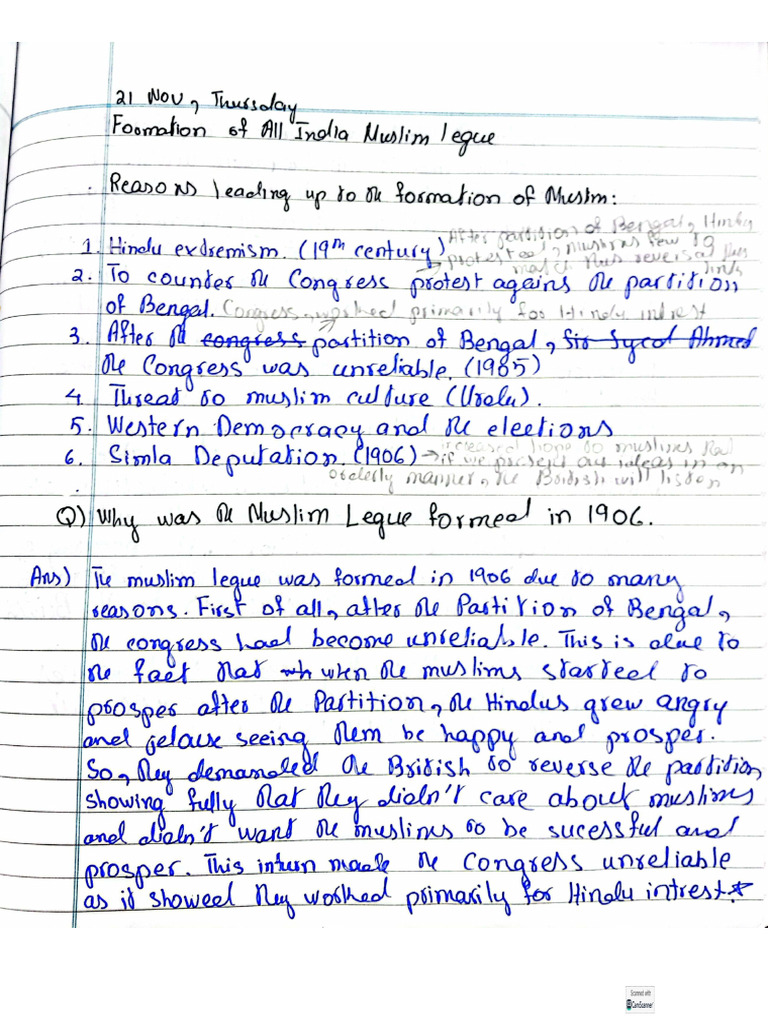 21 Nov, Thursday
Foormation of All India Muslim legue
. Reasons leading up to the formation of Muslm:
1. Hindu extremism. (19th century) After partition of Bengal, Hindus
protested, muslims
2. To counter the Congress protest agains the partition
of Bengal. Congress worked primarily for Hindu intrest
3. After the congress partition of Bengal, Sir Syed Ahmed
the Congress was unreliable. (1905)
4. Threat to muslim culture (Urdu).
5. Western Democracy and the elections
increased hope to muslims that
6. Simla Deputation. (1906) → if we present our ideas in an
orderly manner, the British will listen
Q) Why was the Muslim Legue formed in 1906.
Ans) The muslim legue was formed in 1906 due to many
reasons. First of all, after the Partition of Bengal,
the congress had become unreliable. This is due to
the fact that wh when the muslims started to
prosper after the Partition, the Hindus grew angry
and jelouse seeing them be happy and prosper.
So, they demanded the British to reverse the partition,
showing fully that they didn't care about muslims
and didn't want the muslims to be sucessful and
prosper. This inturn made the Congress unreliable
as it showed they worked primarily for Hindu intrest.*
Scanned with
CamScanner